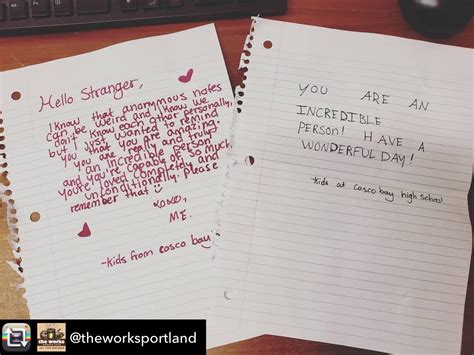 Hello Stranger,
I know that anonymous notes
can be weird and I know we
don't know each other personally,
but I just wanted to remind
you that you're amazing
you are really and truly
an incredible person
and you're capable of so much.
you're loved completely and
unconditionally. please
remember that
xoxo,
ME.
-kids from casco bay
YOU ARE AN
INCREDIBLE
PERSON! HAVE A
WONDERFUL DAY!
-kids at casco bay high school
the works
@theworksportland